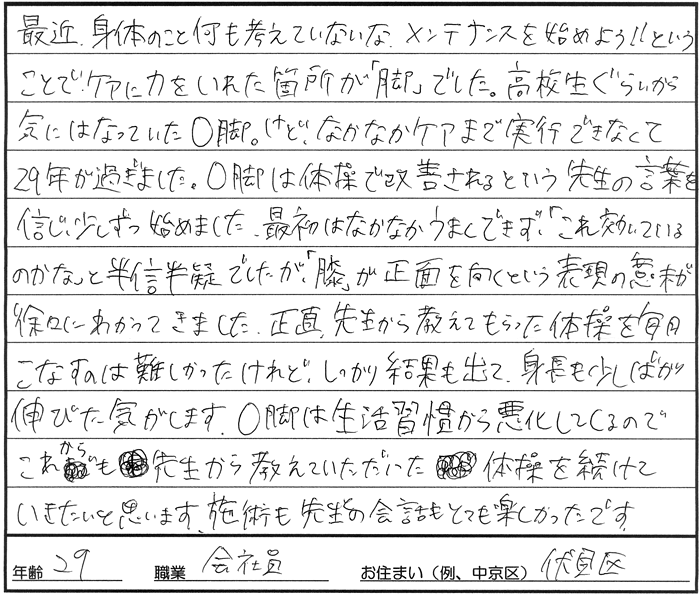 最近、身体のこと何も考えていないな、メンテナンスを始めよう!!という
ことで、ケアに力をいれた箇所が「脚」でした。高校生ぐらいから
気にはなっていたO脚。けど、なかなかケアまで実行できなくて
29年が過ぎました。O脚は体操で改善されるという先生の言葉を
信じ、少しずつ始めました。最初はなかなかうまくできず、「これ効いている
のかな」と半信半疑でしたが、「膝」が正面を向くという表現の意味が
徐々にわかってきました。正直、先生から教えてもらった体操を毎日
こなすのは難しかったけれど、しっかり結果も出て、身長も少しばかり
伸びた気がします。O脚は生活習慣から悪化してくるので
これからも先生から教えていただいた体操を続けて
いきたいと思います。施術も先生の会話もとても楽しかったです。
年齢 29 職業 会社員 お住まい（例、中京区） 伏見区